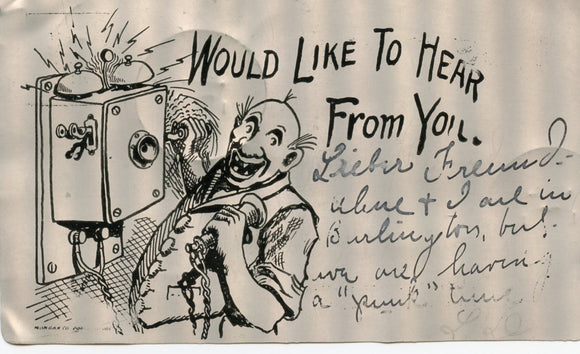 WOULD LIKE TO HEAR
FROM YOU.
Lieber Freund-
& I are in
Burlington, but
we are having
a "punk" time